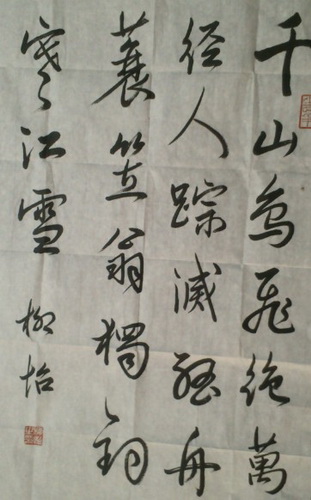 千山鸟飛絶萬
径人踪滅孤舟
蓑笠翁獨釣
寒江雪 柳怡